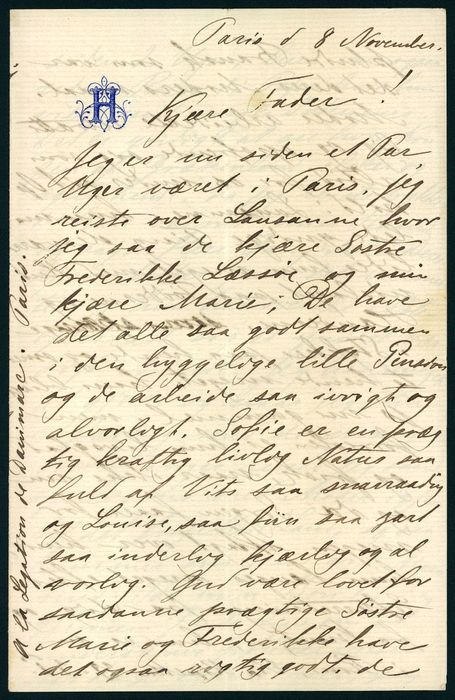 Paris d 8 November.
H
Kjære Fader!
Jeg er nu siden et Par
Uger været i Paris, jeg
reiste over Lausanne hvor
jeg saa de kjære Søstre
Frederikke Læssøe og min
kjære Marie; De have
det alle saa godt sammen
i den hyggelige lille Pension
og de arbeide saa ivrigt og
alvorligt. Sofie er en præg
tig kraftig livlig Natur saa
fuld af Vits saa
og Louise, saa fiin saa zart
saa inderlig kjærlig og al
vorlig. Gud være lovet for
saadanne prægtige Søstre
Marie og Frederikke have
det ogsaa rigtig godt. de
A la Legation de Danimarc. Paris.